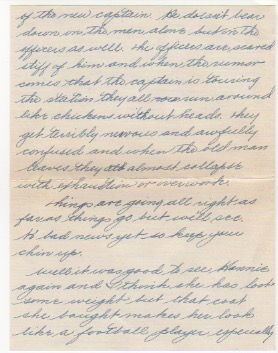 of the new captain. He doesn't bear
down on the men alone but on the
officers as well. The officers are scared
stiff of him and when the rumor
comes that the captain is touring
the station they all run around
like chickens without heads. They
get terribly nervous and awfully
confused and when the old man
leaves they all almost collapse
with exhaustion or overwork.
Things are going all right as
far as things go but we'll see.
No bad news yet so keep your
chin up.
Well it was good to see
again and I think she has lost
some weight but that coat
she bought makes her look
like a football player especially